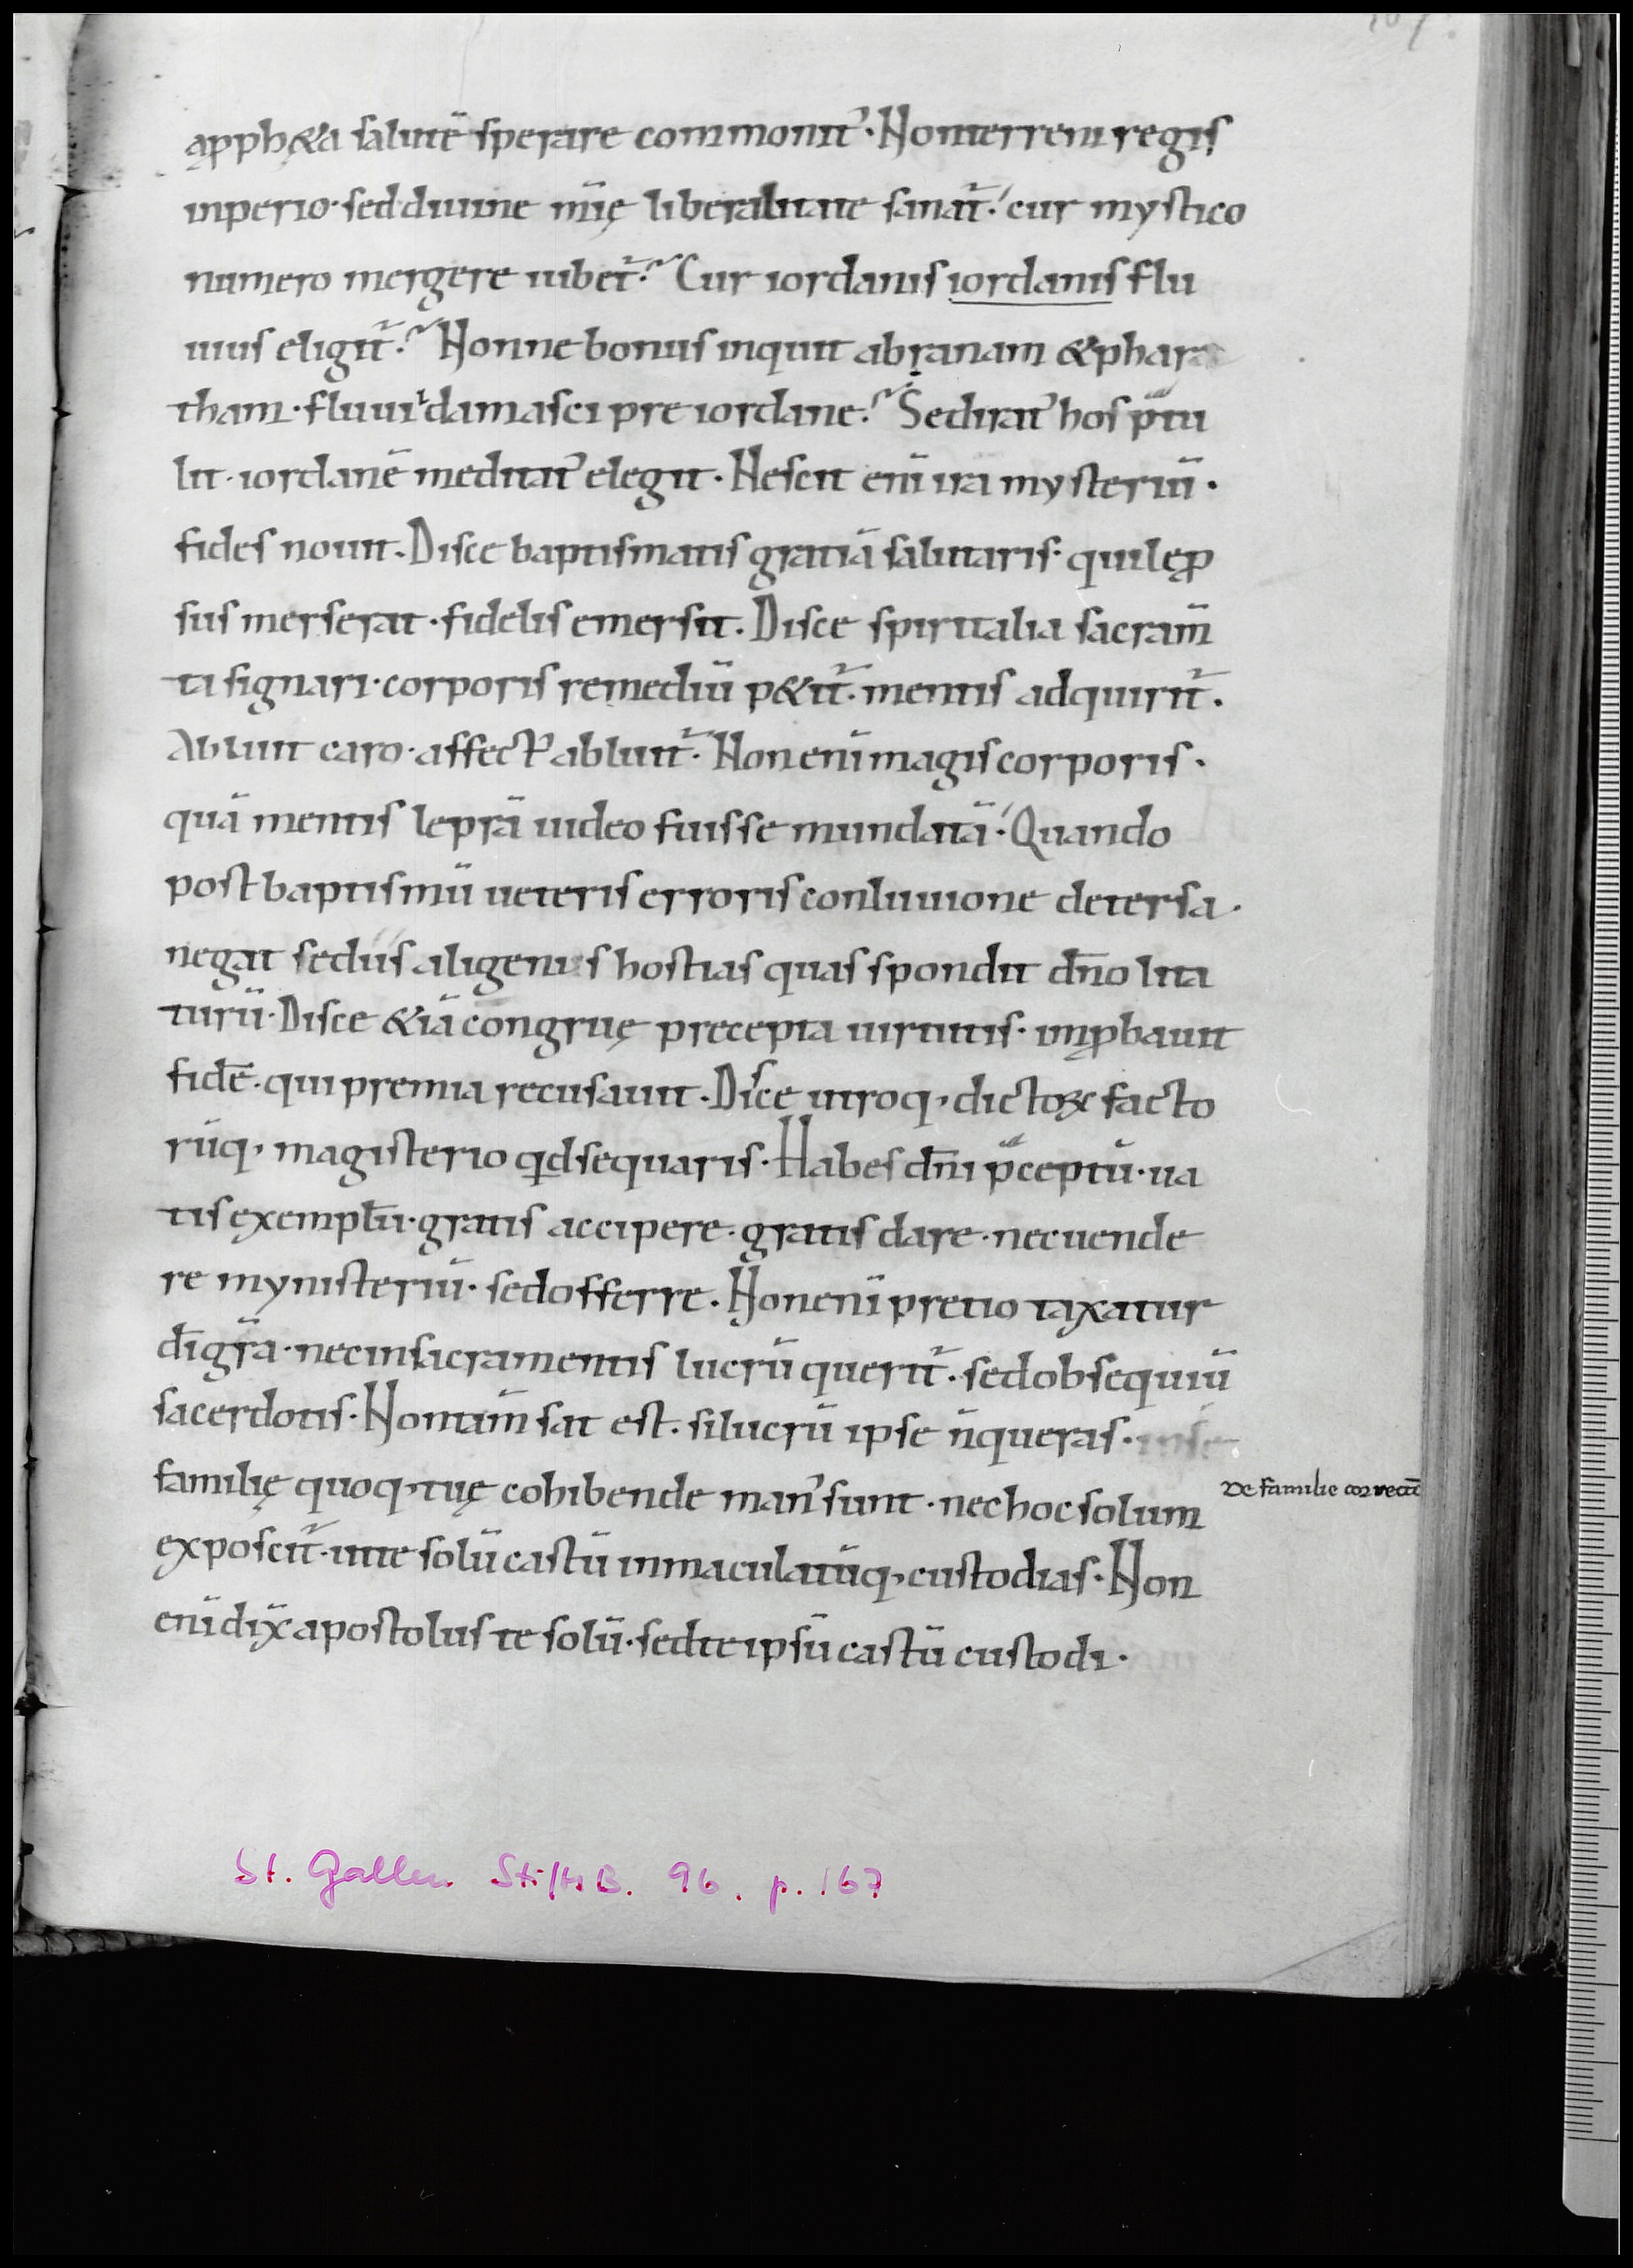 167.
a pph&a salutē sperare commonit᷑· Non terreni regis
inperio· sed diuine mīę liberalitate sanat᷑· cur mystico
numero mergere iubet᷑? Cur iordanis iordanis flu
uius eligit᷑? Nonne bonus inquit abranam & phar
tham· fluuiˈ damasci pre iordane? Sed irat᷒ hos p̄tu
lit· iordanē meditat᷒ elegit· Nescit enī ira mysteriū·
fides nouit· Disce baptismatis gratiā salutaris· qui lep̱ꝓ
sus merserat· fidelis emersit· Disce spiritalia sacram̄
ti signari· corporis remediū p&it᷑· mentis adquirit᷑·
Abluit caro· affect᷒ abluit᷑· Non enī magis corporis·
quā mentis leprā uideo fuisse mundatā· Quando
post baptismū ueteris erroris conluuione detersa·
negat se diis aligenis hostias quas spondit dn̄o lita
turū· Disce &iā congruę precepta uirtutis· inꝓbauit
fidē· qui premia recusauit· Disce utroq; dictoꝝ facto
rūq; magisterio qd sequaris· Habes dn̄i p̄ceptū· ua
tis exemplū· gratis accipere· gratis dare· nec uende
re mynisteriū· sed offerre· Non enī pretio taxatur
dī gr̄a· nec in sacramentis lucrū querit᷑· sed obsequiū
sacerdotis· Non tam̄ sat est· si lucrū ipse n̄ queras·
familię quoq; tuę cohibende man᷒ sunt· nec hoc solum
De familie correctō
exposcit᷑· ut te solū castū inmaculatūq; custodias· Non
enī dix̄ apostolus te solū· sed te ipsū castū custodi·
St. Gallen StiftsB. 96. p. 167